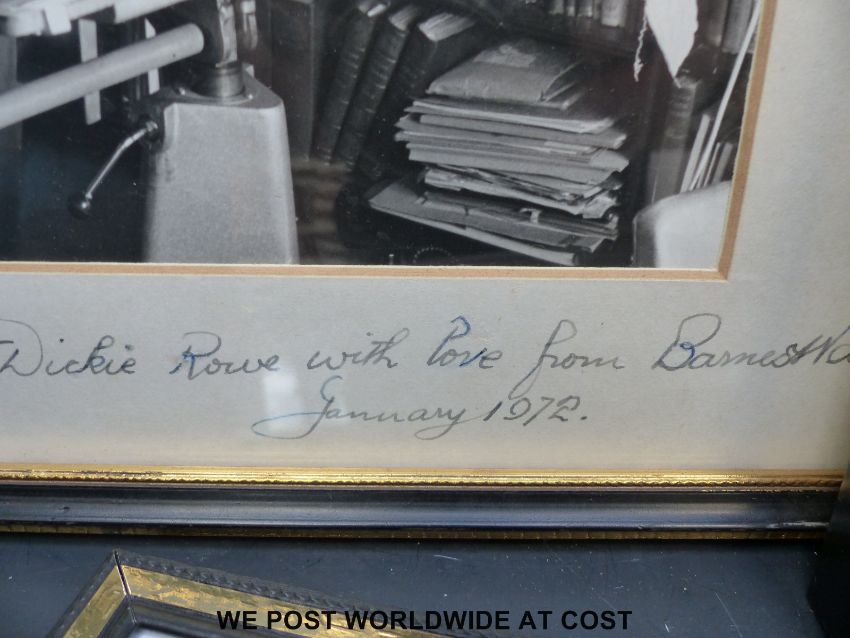 Dickie Rowe with love from Barnes Wa
January 1972.
WE POST WORLDWIDE AT COST